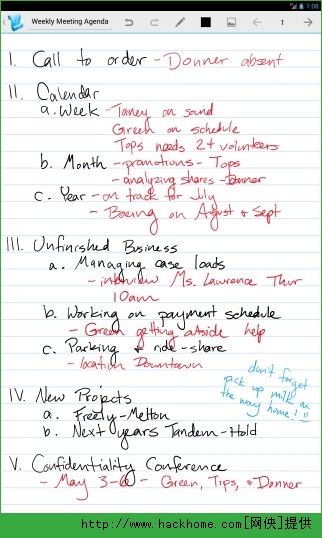 1:08
Weekly Meeting Agenda
1
I. Call to order - Donner absent
II. Calendar
a. Week - Taney on sound
Green on schedule
Tops needs 2+ volunteers
b. Month - promotions - Tops
- analyzing shares - Donner
c. Year - on track for July
- Boeing on August + Sept
III. Unfinished Business
a. Managing case loads
- interview Ms. Lawrence Thur
10am
b. Working on payment schedule
- Green getting outside help
c. Parking + ride-share
- location Downtown
don't forget
pick up milk on
the way home! !!
IV. New Projects
a. Freely-Melton
b. Next years Tandem-Hold
V. Confidentiality Conference
- May 3-6 - Green, Tips, + Donner
http://www.hackhome.com[网侠]提供